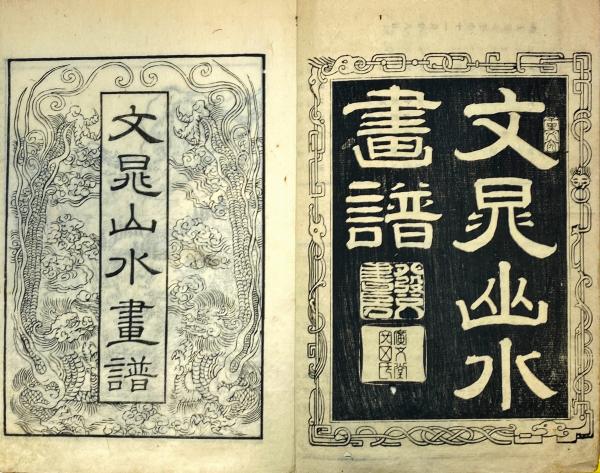 文晁山水
畫譜
文晁山水畫譜